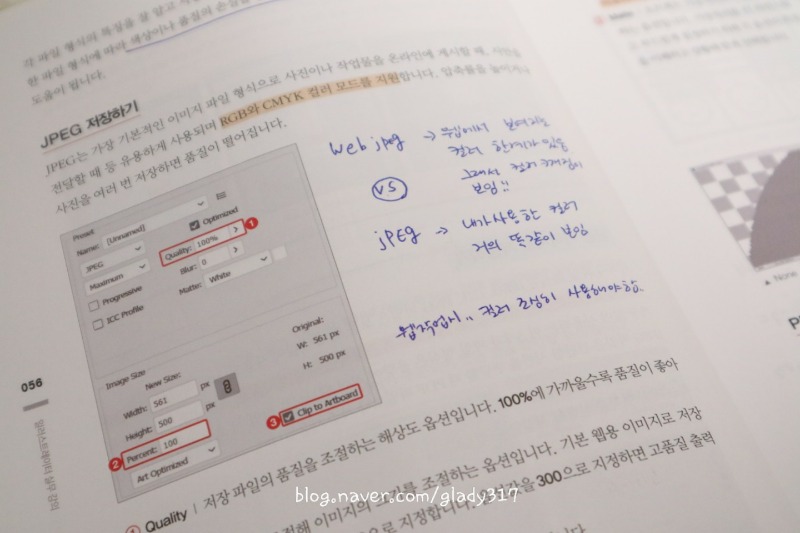 각 파일 형식의 특징을 잘 알고
한 파일 형식에 따라 색상이나 품질의 손실을
도움이 됩니다.
JPEG 저장하기
JPEG는 가장 기본적인 이미지 파일 형식으로 사진이나 작업물을 온라인에 게시할 때,
전달할 때 등 유용하게 사용되며 RGB와 CMYK 컬러 모드를 지원합니다. 압축률을 높이거나
사진을 여러 번 저장하면 품질이 떨어집니다.
Preset
Name: [Unnamed]
JPEG
Optimized
Maximum
Quality: 100%
1
Progressive
Blur: 0
ICC Profile
Matte: White
Image Size
New Size:
Original:
Width: 561 px
W: 561 px
Height: 500 px
H: 500 px
2 Percent: 100
3 Clip to Artboard
Art Optimized
Web jpeg → 웹에서 보여지는
컬러 한계가 있음
그래서 컬러
보임!!
VS
jPEG → 내가 사용한 컬러
거의 똑같이 보임
웹작업시.. 컬러 조심히 사용해야함.
056
일러스트레이터 실무 강의
1 Quality | 저장 파일의 품질을 조절하는 해상도 옵션입니다. 100%에 가까울수록 품질이 좋아
이미지의 크기를 조절하는 옵션입니다. 기본 웹용 이미지로 저장
으로 지정합니다. 300으로 지정하면 고품질 출력
니다.
▲ None
blog.naver.com/glady317